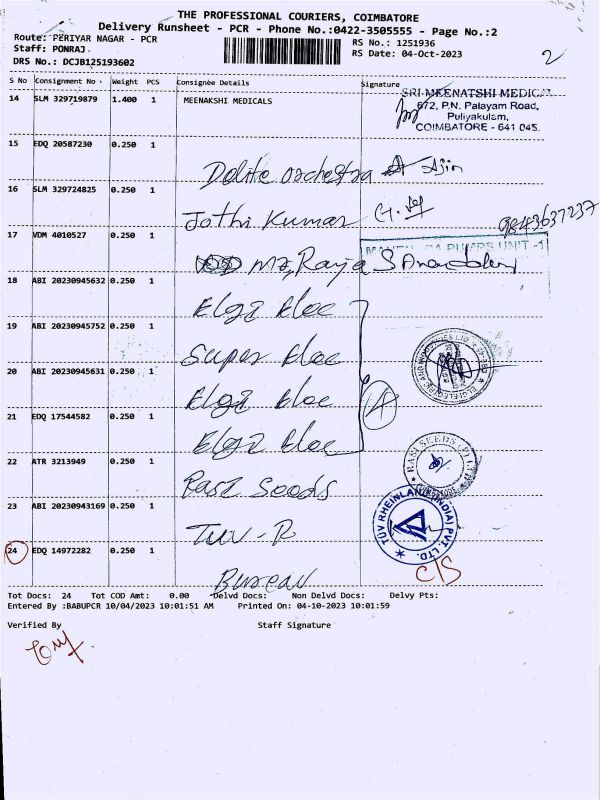 THE PROFESSIONAL COURIERS, COIMBATORE
Delivery Runsheet - PCR - Phone No.:0422-3505555 - Page No.:2
Route: PERIYAR NAGAR - PCR
RS No.: 1251936
Staff: PONRAJ
RS Date: 04-Oct-2023
DRS No.: DCJB125193602
2
S No Consignment No Weight PCS Consignee Details Signature
14 SLM 329719879 1.400 1 MEENAKSHI MEDICALS
SRI MEENATSHI MEDICAL
672, P.N. Palayam Road,
Puliyakulam,
COIMBATORE - 641 045.
15 EDQ 20587230 0.250 1
Delite orchestra Ajin
16 SLM 329724825 0.250 1
Jothi Kumar
9843637237
17 VDM 4010527 0.250 1
PUMPS UNIT -1
Raja
18 ABI 20230945632 0.250 1
Elgi Elec
19 ABI 20230945752 0.250 1
Super Elec
20 ABI 20230945631 0.250 1
Elgi Elec
21 EDQ 17544582 0.250 1
Elgi Elec
4
22 ATR 3213949 0.250 1
Rasi Seeds
RASI SEEDS (P) LTD
23 ABI 20230943169 0.250 1
TUV-R
TÜV RHEINLAND (INDIA) PVT. LTD.
24 EDQ 14972282 0.250 1
Bureau
C/S
Tot Docs: 24 Tot COD Amt: 0.00 Delvd Docs: Non Delvd Docs: Delvy Pts:
Entered By :BABUPCR 10/04/2023 10:01:51 AM Printed On: 04-10-2023 10:01:59
Verified By Staff Signature